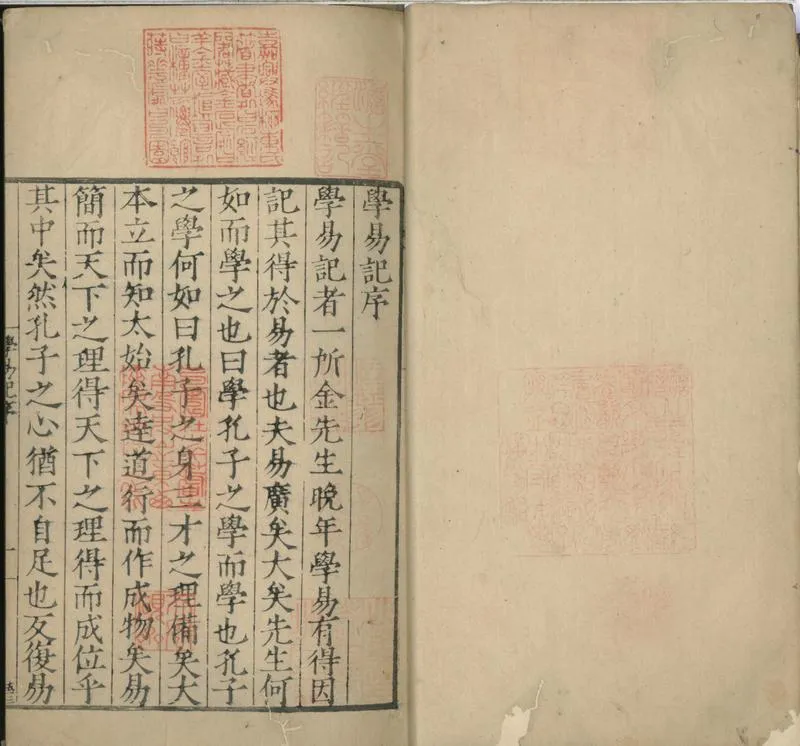 學易記序
學易記者一所金先生晚年學易有得因
記其得於易者也夫易廣矣大矣先生何
如而學之也曰學孔子之學而學也孔子
之學何如曰孔子之身三才之理備矣大
本立而知太始矣達道行而作成物矣易
簡而天下之理得天下之理得而成位乎
其中矣然孔子之心猶不自足也反復易
學易記序
一